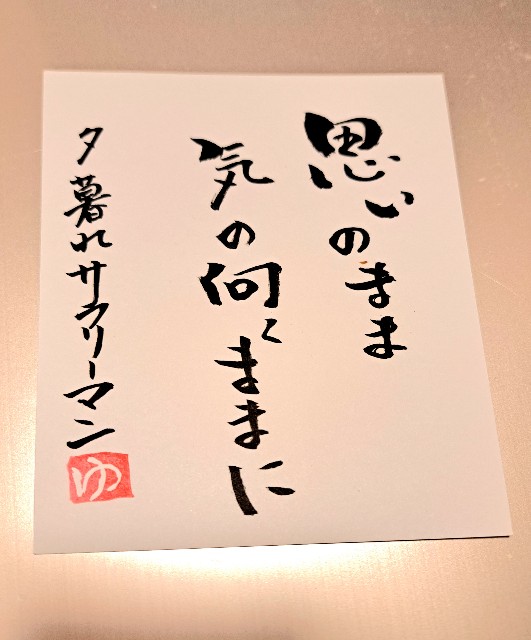 思いのまま
気の向くままに
夕暮れサラリーマン
ゆ